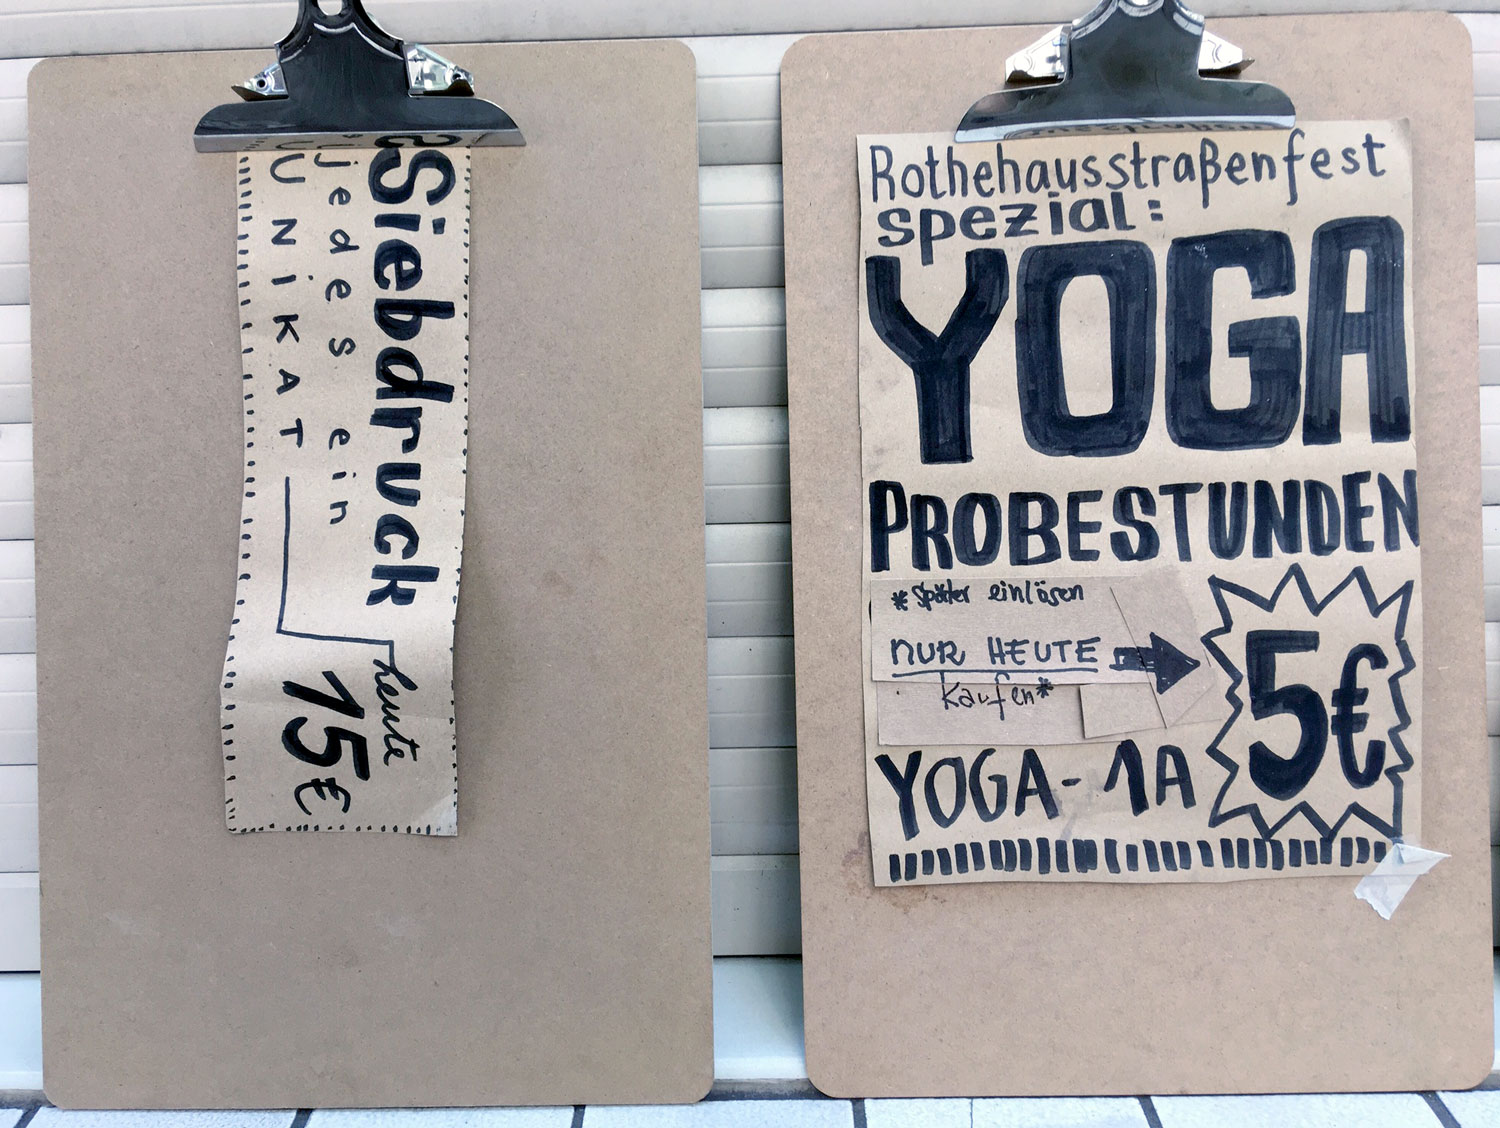 Siebdruck
jedes ein
UNIKAT
heute
15€
Rothehausstraßenfest
spezial:
YOGA
PROBESTUNDEN
*Später einlösen
NUR HEUTE
kaufen*
5€
YOGA-1A